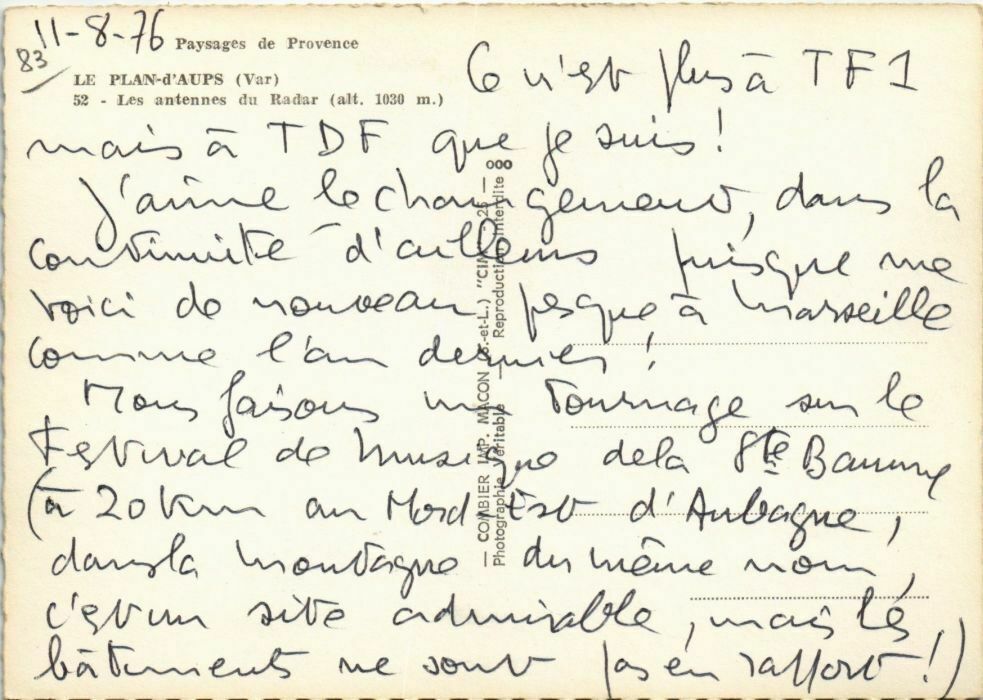 11-8-76
83
Paysages de Provence
LE PLAN-d'AUPS (Var)
52 - Les antennes du Radar (alt. 1030 m.)
Ce n'est plus à TF1
mais à TDF que je suis !
J'aime le changement, dans la
continuité d'ailleurs puisque me
voici de nouveau presque à Marseille
comme l'an dernier !
Nous faisons un tournage sur le
Festival de Musique de la Ste Baume
(à 20 km au Nord Est d'Aubagne,
dans la montagne du même nom,
c'est un site admirable, mais les
bâtiments ne sont pas en rapport !)
— COMBIER IMP. MACON (S.-et-L.) "CIM" — 
Photographie Véritable — Reproduction interdite